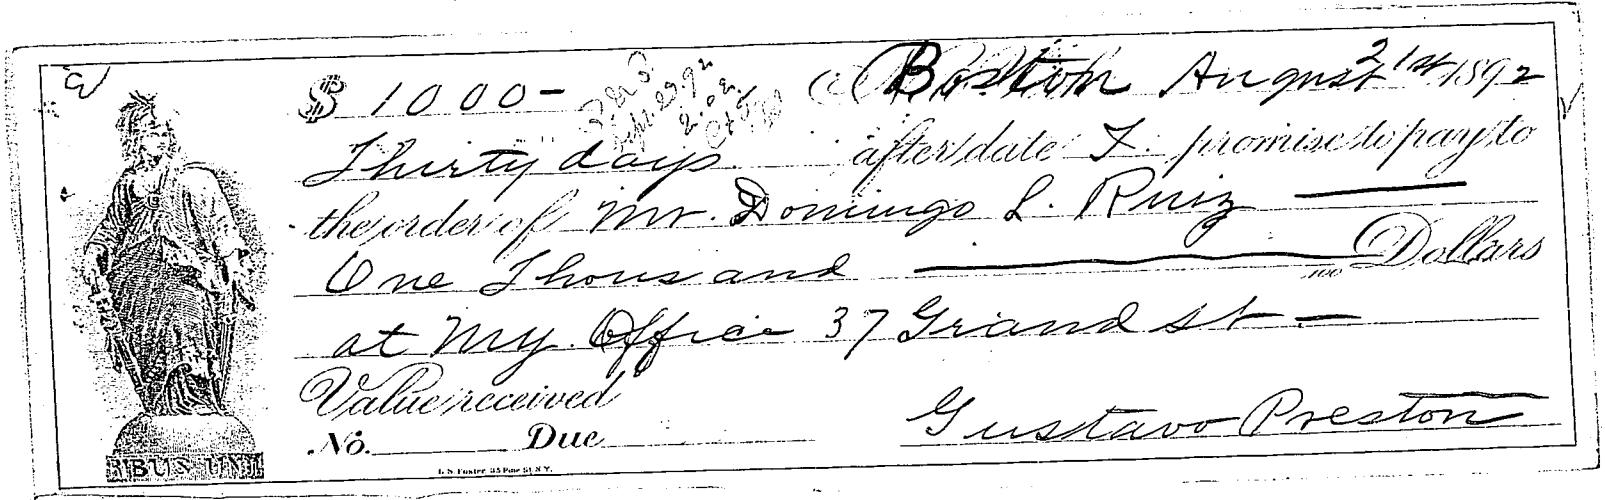 $ 1000- Boston August 21st 1892
Thirty days after date I promise to pay to
the order of Mr. Domingo L. Ruiz
One Thousand /100 Dollars
at My Office 37 Grand st
Value received
Gustavo Preston
No. Due
RIBUS UNI